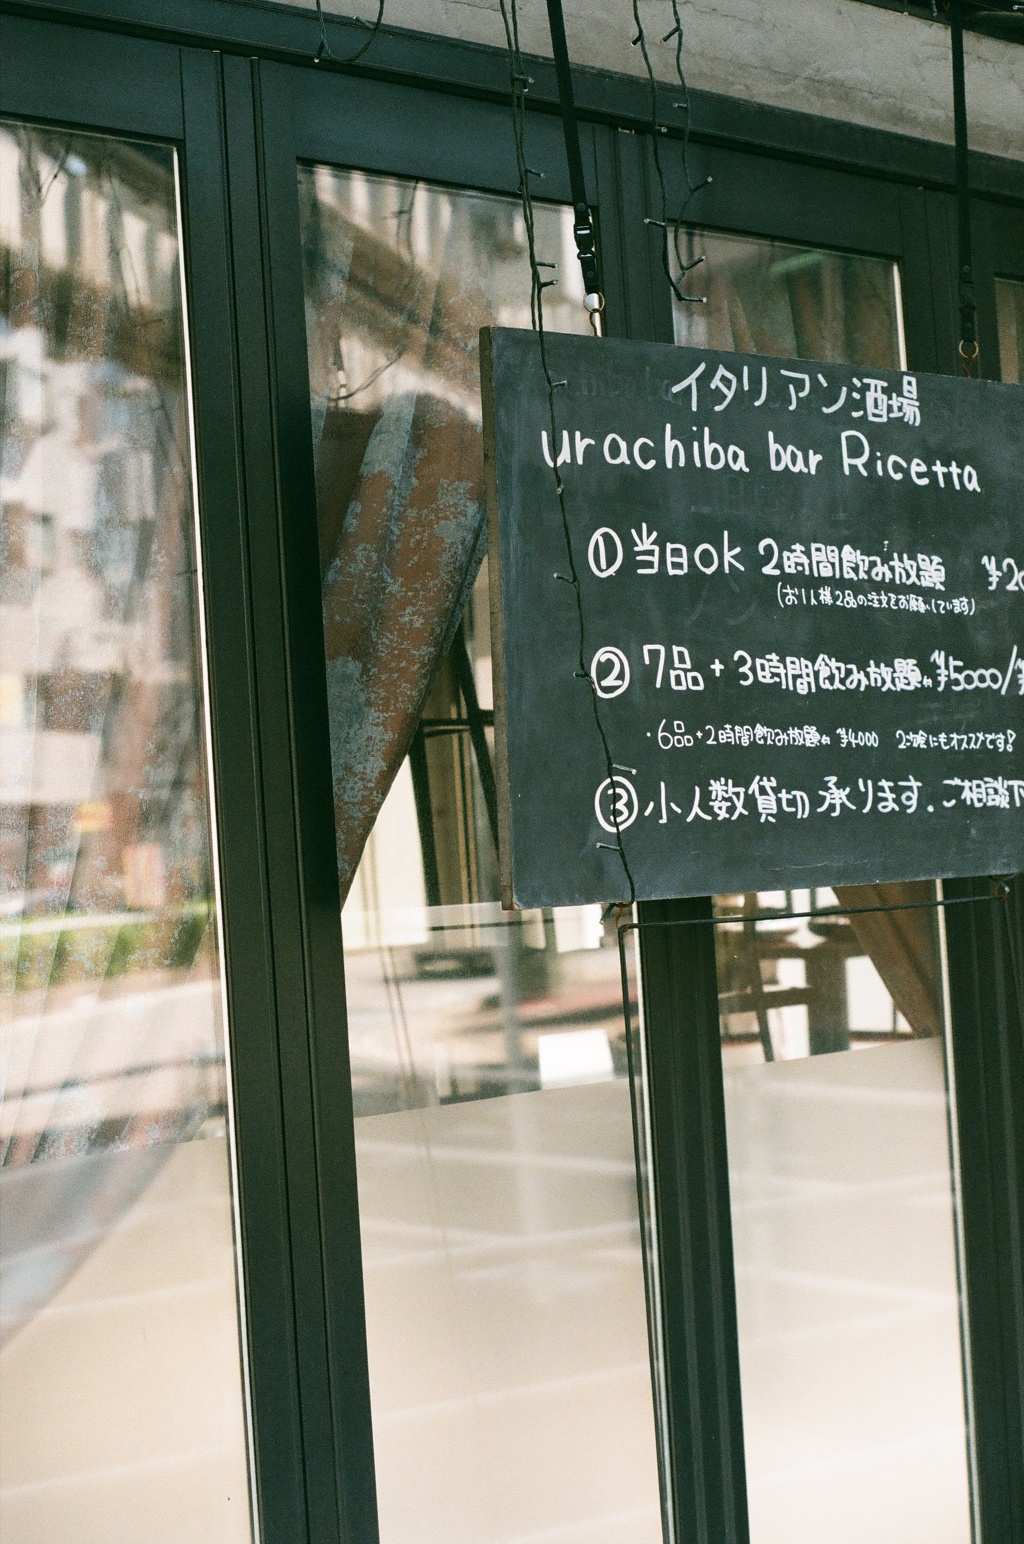 イタリアン酒場
urachiba bar Ricetta
① 当日OK 2時間飲み放題 ¥20
(お1人様2品の注文をお願いしています)
② 7品+3時間飲み放題 ¥5000/
・6品+2時間飲み放題 ¥4000 2次会にもオススメです!
③ 小人数貸切承ります。ご相談下